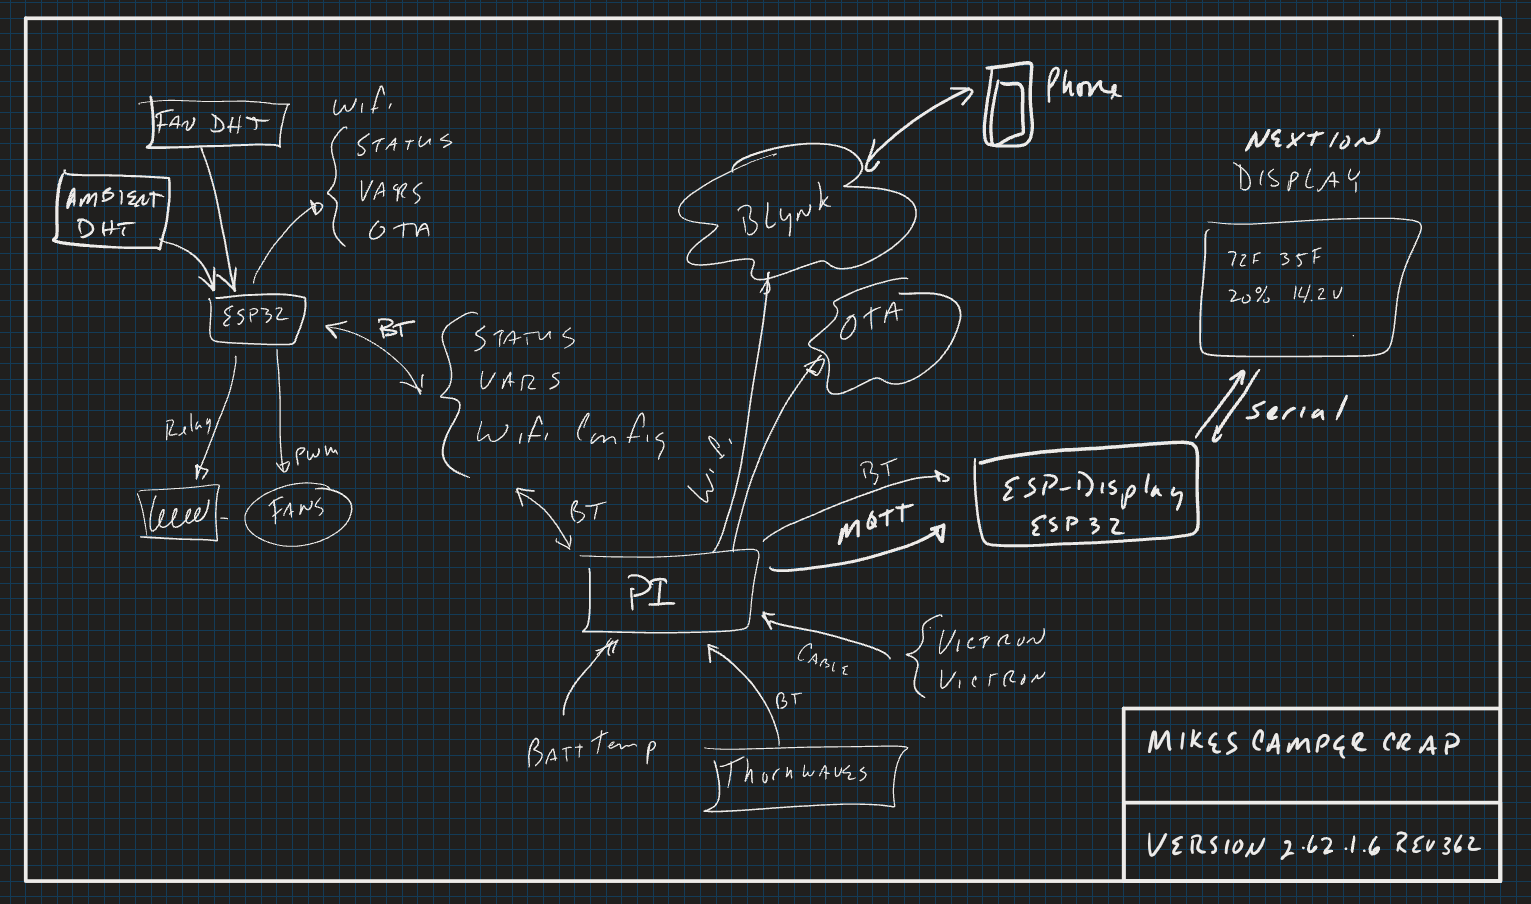 FAN DHT
AMBIENT
DHT
Wifi
STATUS
VARS
OTA
ESP32
Relay
PWM
FANS
BT
STATUS
VARS
Wifi Config
BT
Phone
BLYNK
OTA
Wifi
NEXTION
DISPLAY
72F 35F
20% 14.2V
Serial
BT
MQTT
ESP-Display
ESP32
PI
CABLE
VICTRON
VICTRON
BATT Temp
BT
ThornWAVES
MIKES CAMPER CRAP
VERSION 2.62.1.6 REV362